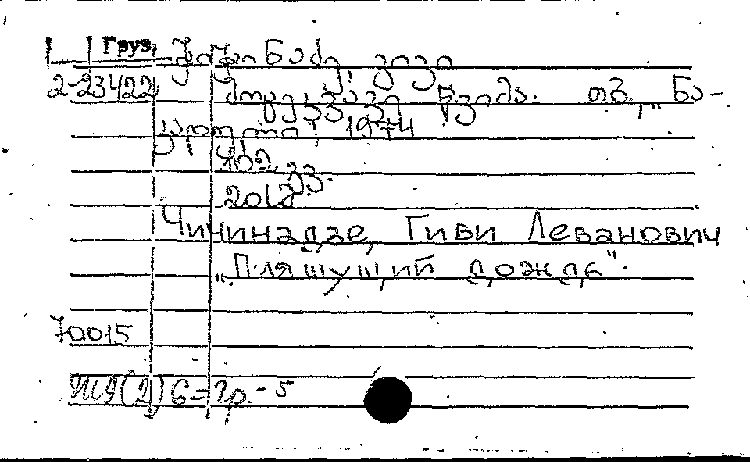 Груз. ჭიჭინაძე, გივი
2-23422 მოცეკვავე წვიმა. თბ., „ნა-
კადული“, 1974
102 გვ.
Чичинадзе, Гиви Леванович
„Пляшущий дождь“.
70015
Ш9(2)6=Гр.-5